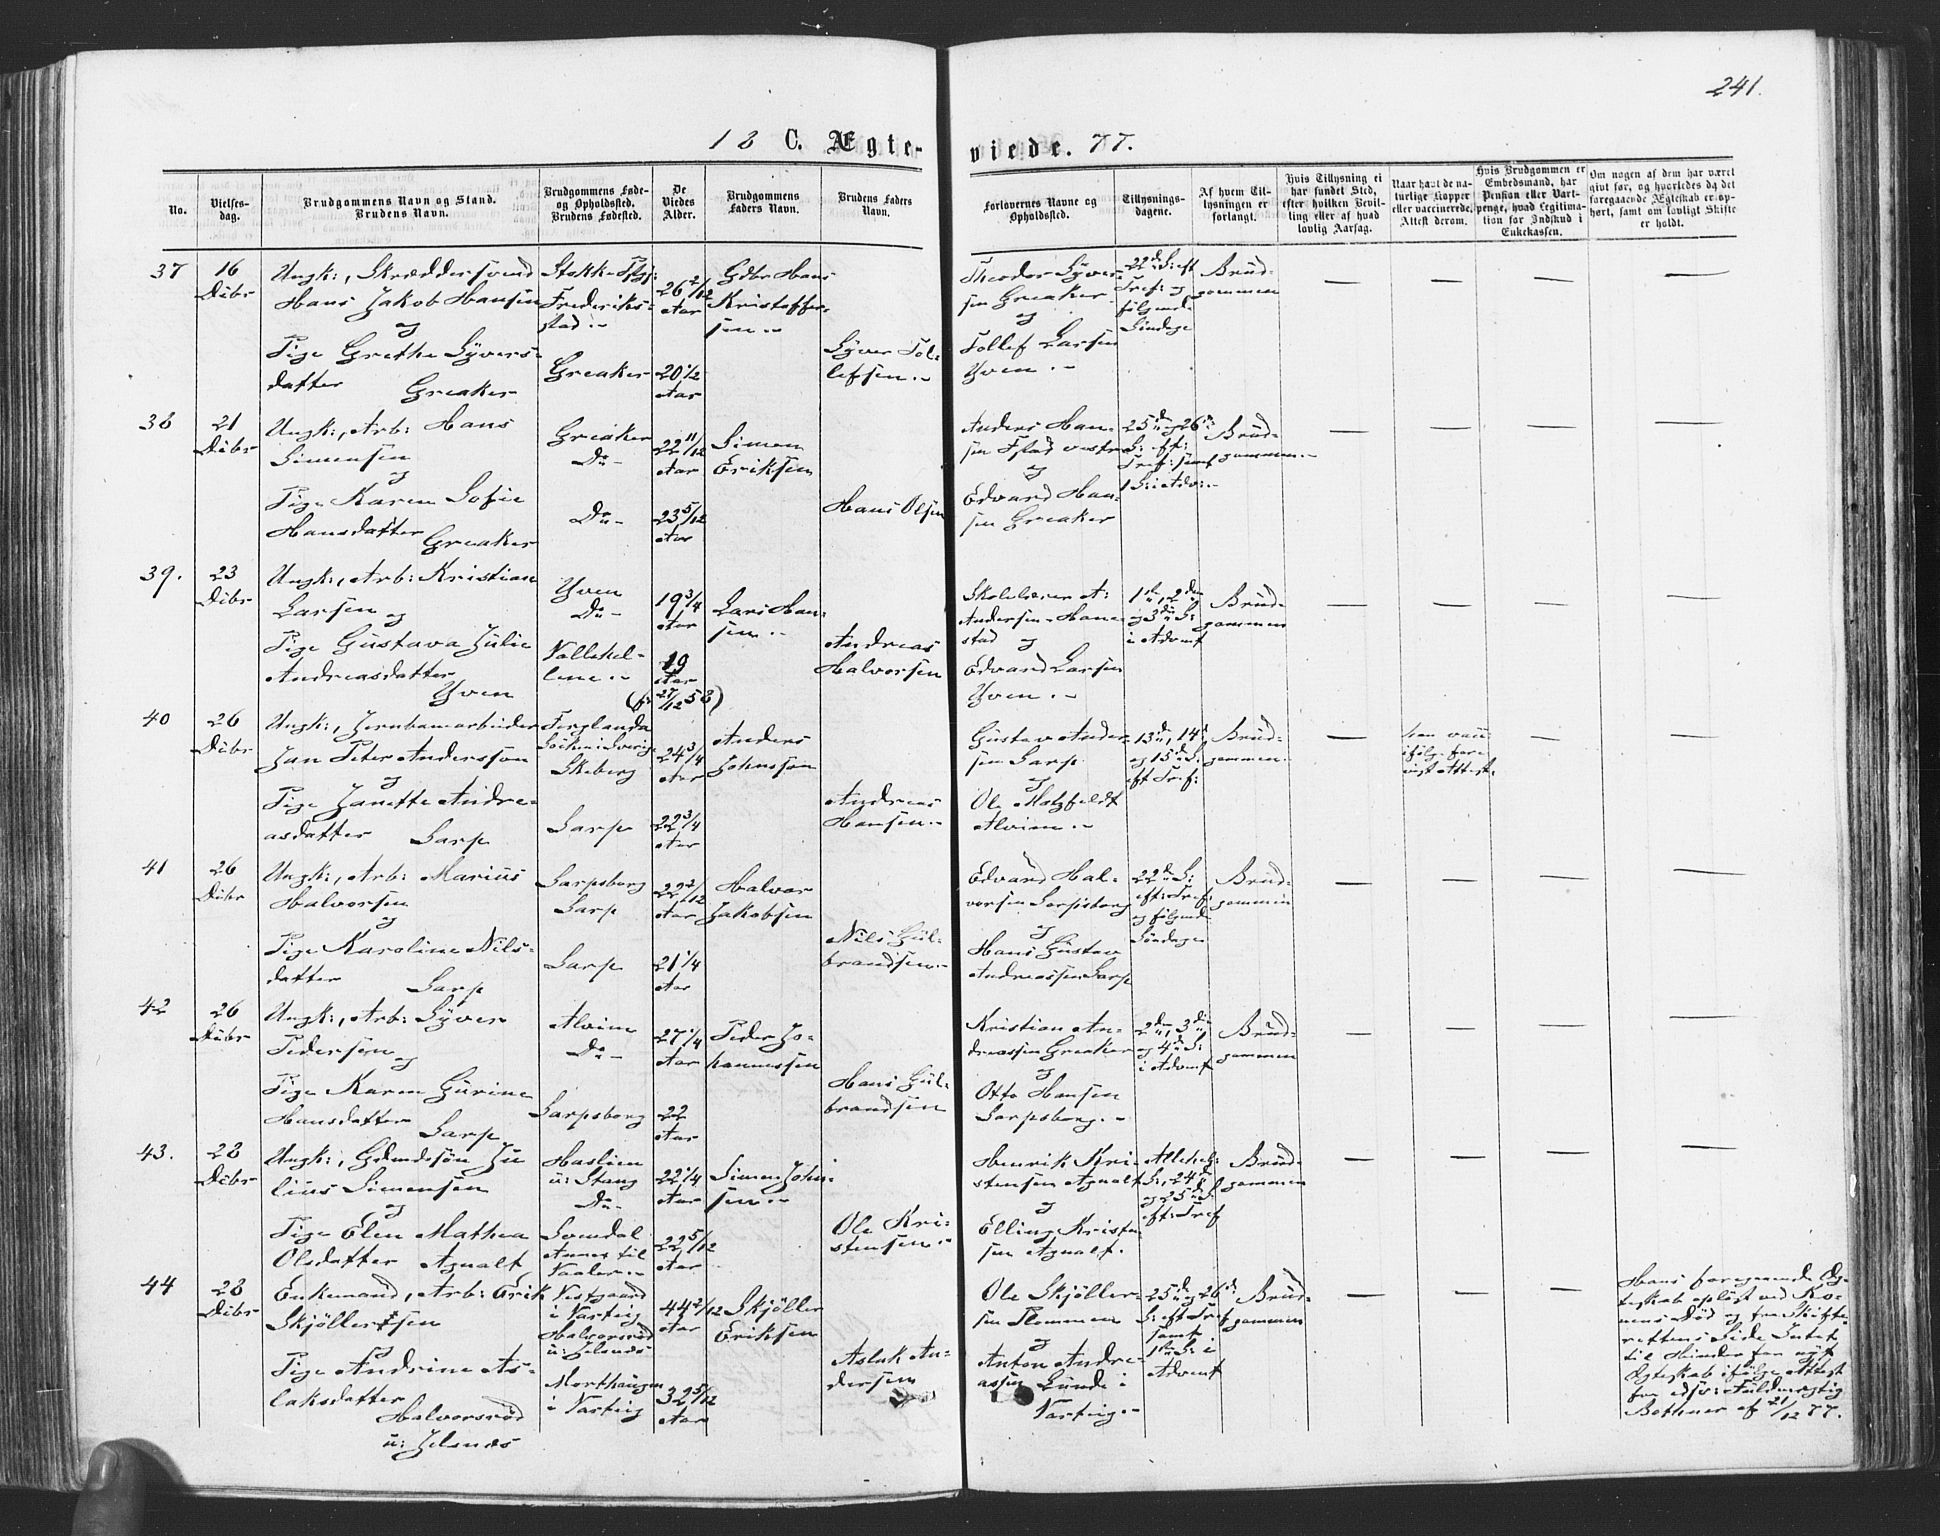 241.
18 C. Ægte-
viede. 77.
No.
Vielses-
dag.
Brudgommens Navn og Stand.
Brudens Navn.
Brudgommens Føde-
og Opholdssted.
Brudens Fødested.
De
Viedes
Alder.
Brudgommens
Faders Navn.
Brudens Faders
Navn.
Forlovernes Navne og
Opholdssted.
Tillysnings-
dagene.
Af hvem Til-
lysningen er
forlangt.
Hvis Tillysning ei
har fundet Sted,
efter hvilken Bevil-
ling eller af hvad
lovlig Aarsag.
Naar havt de na-
turlige Kopper
eller vaccinerede,
Attest derom.
Hvis Brudgommen er
Embedsmand, har
Pension eller Vart-
penge, hvad Legitima-
tion for Indskud i
Enkekassen.
Om nogen af dem har været
gift før, og hvorledes da det
foregaaende Ægteskab er op-
hørt, samt om lovligt Skifte
er holdt.
37
16
Dcbr
Ungk:, Skræddersvend
Hans Jakob Hansen
og
Pige Grethe Syvers-
datter Greaker
Frederiks-
stad.-
Greaker
26 2/12
Aar
20 1/2
Aar
Hans
Kristoffer-
sen.-
Syver Tol-
lefsen.-
Theodor Syver-
sen Greaker
og
Tollef Larsen
Yven.-
22d S: eft
Tref: og
følgende
Søndage
Brud-
gommen
— — — —
38
21
Dcbr
Ungk:, Arb: Hans
Simensen
og
Pige Karen Sofie
Hansdatter Greaker
Greaker
Do-
Do-
22 11/12
Aar
23 5/12
Aar
Simen
Eriksen
Hans Olsen
Anders Han-
sen
og
Edvard Han-
sen Greaker
25d og 26d
S: eft:
Tref: samt
1 S: i Adv:-
Brud-
gommen.-
— — — —
39.
23
Dcbr
Ungk:, Arb: Kristian
Larsen og
Pige Gustava Julie
Andreasdatter
Yven
Yven
Do-
19 3/4
Aar
19
Aar
(f: 27/12 58)
Lars Han-
sen.-
Andreas
Halvorsen
Skolelærer A:
Andersen
og
Edvard Larsen
Yven.-
1ste, 2den
og 3die S:
i Advent
Brud-
gommen
— — — —
40
26
Dcbr
Ungk:, Jernbanearbeider
Jan Peter Andersson
og
Pige Janette Andre-
asdatter Sarp
Sarp
24 3/4
Aar
22 3/4
Aar
Anders
Johnsson
Andreas
Hansen.-
Gustav Ander-
sen Sarp
og
Ole Hatzfeldt
Alvim.-
13d, 14d
og 15d S:
eft Tref:
Brud-
gommen.
—
ifølge fore-
vist Attest.
— —
41
26
Dcbr
Ungk:, Arb: Marius
Halvorsen
og
Pige Karoline Nils-
datter Sarp
Sarpsborg
Sarp
Sarp
22 2/12
Aar
21 1/4
Aar
Halvor
Jakobsen
Nils Gul-
brandsen.-
Edvard Hal-
vorsen Sarpsborg
og
Hans Gustav
Andreassen Sarp
22d S:
eft: Tref:
og følgende
Søndage
Brud-
gommen
— — — —
42
26
Dcbr
Ungk:, Arb: Syver
Pedersen og
Pige Karen Gurine
Hansdatter Sarp
Alvim
Do-
Sarpsborg
27 1/4
Aar
22
Aar
Peder Jo-
hannessen
Hans Gul-
brandsen
Kristian An-
dreassen Greaker
og
Otto Hansen
Sarpsborg.-
2den, 3die
og 4de S:
i Advent
Brud-
gommen
— — — —
43.
28
Dcbr
Ungk:, Gdmdsøn Ju
lius Simensen
og
Pige Elen Mathea
Olsdatter Agnalt
Haslien
u: Stang
Do-
22 1/4
Aar
22 5/12
Aar
Simen John-
sen.-
Ole Kri-
stensen.-
Henrik Kri-
stensen Agnalt
og
Elling Kristen
sen Agnalt.
Allehelg:
S:, 24d
og 25d S:
eft: Tref
Brud-
gommen
— — — —
44
28
Dcbr
Enkemand, Arb: Erik
Skjøllersen
og
Pige Andrine As-
laksdatter
Halvorsrød
u: Jelsnæs
Vestgaard
i Varteig
Halvorsrød
u: Jelsnæs
Morthaugen
i Varteig
44 2/12
Aar
32 5/12
Aar
Skjøller
Eriksen
Aslak An-
dersen
Ole Skjøller-
sen Plommen
og
Anton Andre-
assen Lunde i
Varteig.-
25d og 26d
S: eft Tref
samt
1ste S: i
Advent
Brud-
gommen
— — —
Hans foregaaende Æg-
teskab opløst ved Ko-
nens Død og fra Skifte-
rettens Side Intet
til Hinder for nyt
Ægteskab ifølge Attest
fra edsv: Fuldmægtig
Bothner af 21/12 77.